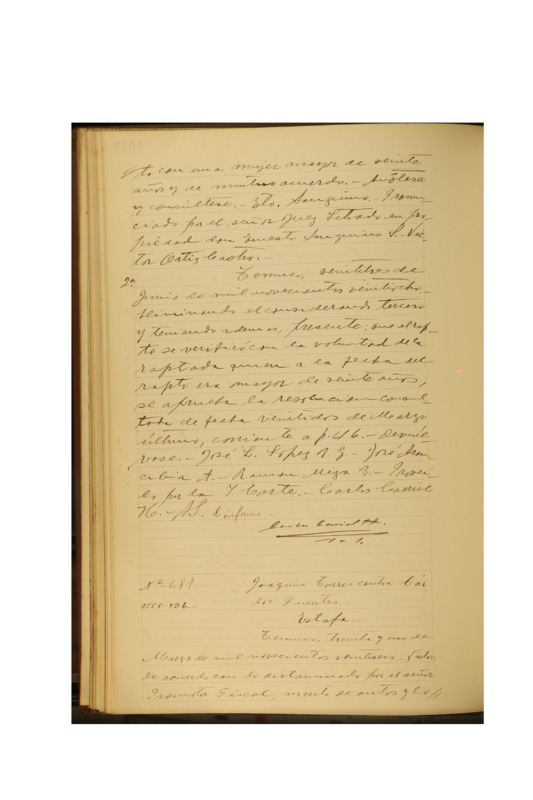 to con una mujer mayor de veinte
años y de mutuo acuerdo.- Anótese
y consúltese.- Eto. Sanguino.- Pronun-
ciado por el señor Juez Letrado en pro-
piedad don Ernesto Sanguino S.- Víc-
tor Ortiz Castro.-
2º Temuco, veintitres de
Junio de mil novecientos veintiocho.-
Eliminando el considerando tercero
y teniendo ademas, presente: que el rap-
to se verificó con la voluntad de la
raptada quien a la fecha del
rapto era mayor de veinte años,
se aprueba la resolucion consul-
tada de fecha veintidos de Marzo
último, corriente a f. 46.- Devuél-
vase.- José L. López R. José Aran-
cibia A.- Ramon Meza B.- Provei-
do por la Y. Corte.- Carlos
H.- S.
Nº 681.- Joaquin Torres contra Cár-
los Fuentes.-
1555-936.-
Estafa.-
Temuco, treinta y uno de
Marzo de mil novecientos veintiseis.- Vistos:
de acuerdo con lo dictaminado por el señor
Promotor Fiscal, mérito de autos y lo //